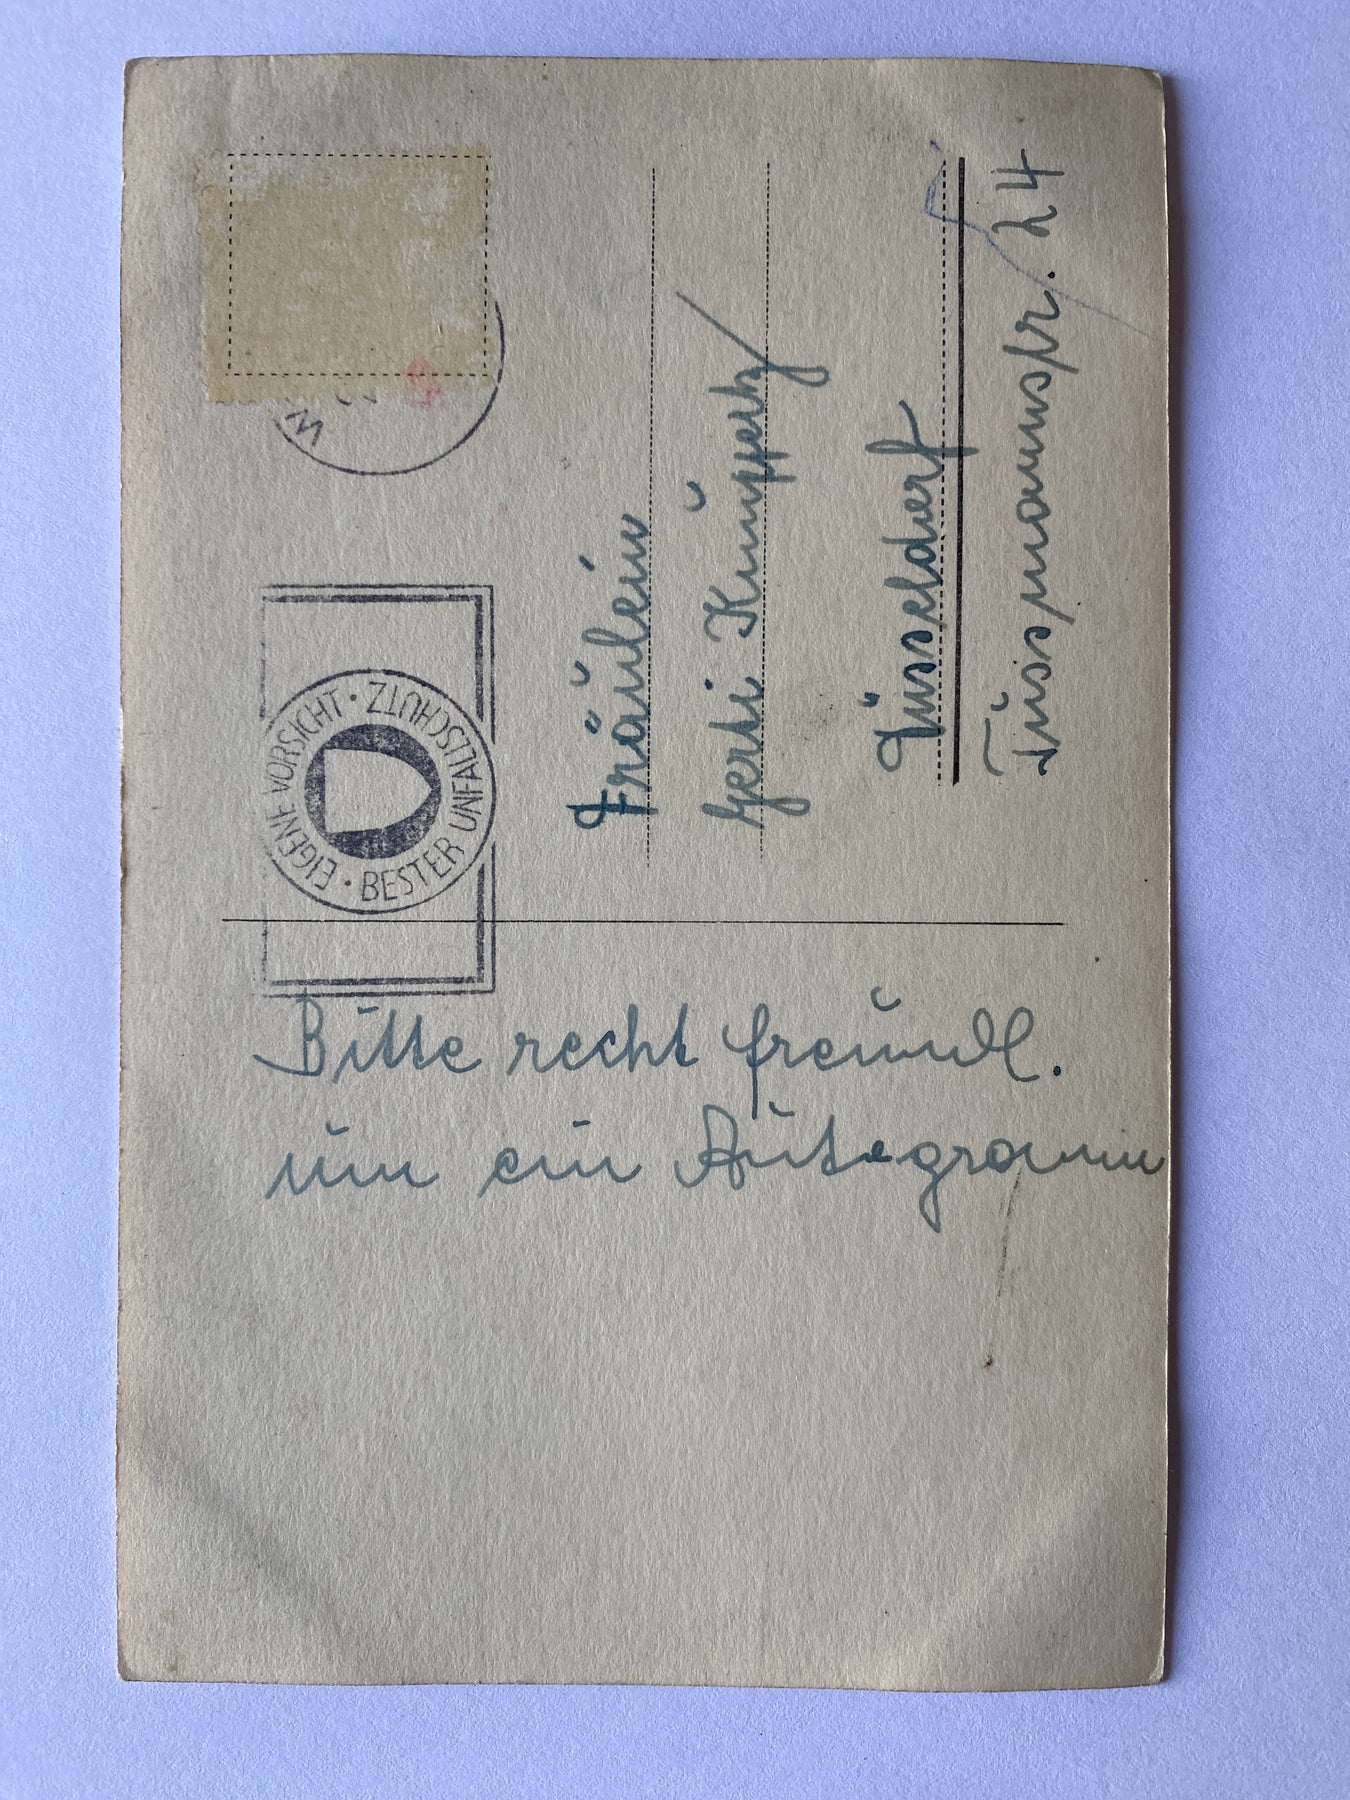 EIGENE VORSICHT · BESTER UNFALLSCHUTZ ·
Fräulein
Gerti Knuppertz
Düsseldorf
Tussmannstr. 24
Bitte recht freundl.
um ein Autogramm